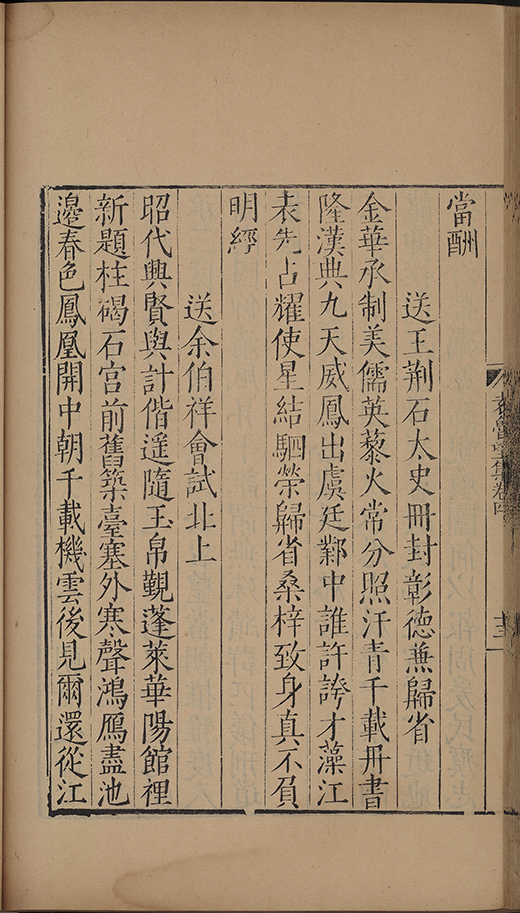 袁魯望集卷四
十三
當酬
送王荊石太史冊封彰德兼歸省
金華承制美儒英藜火常分照汗青千載冊書
隆漢典九天威鳳出虞廷鄴中誰許誇才藻江
表先占耀使星結駟榮歸省桑梓致身真不負
明經
送余伯祥會試北上
昭代興賢與計偕遥隨玉帛覲蓬萊華陽館裡
新題柱碣石宮前舊築臺塞外寒聲鴻鴈盡池
邊春色鳳凰開中朝千載機雲後見爾還從江